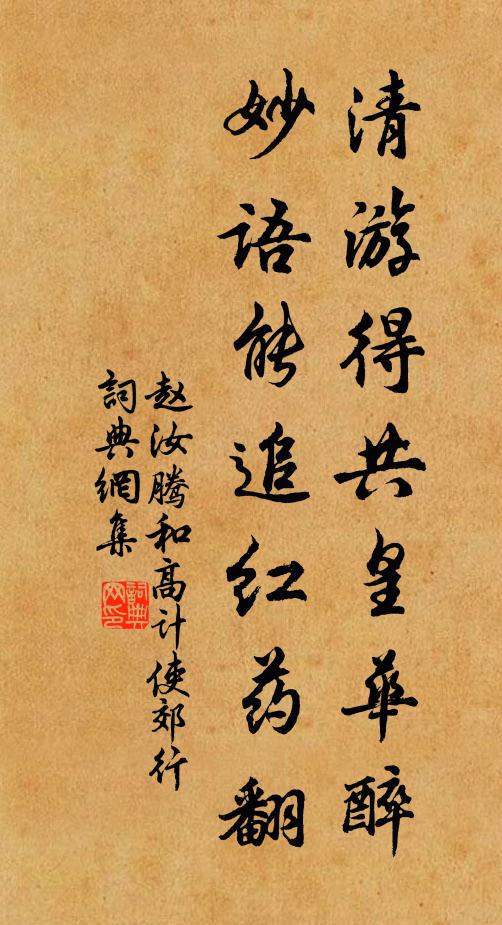 清游得共皇華醉
妙语能追红药翻
赵汝腾和高计使郊行
詞典網集
詞典
网印